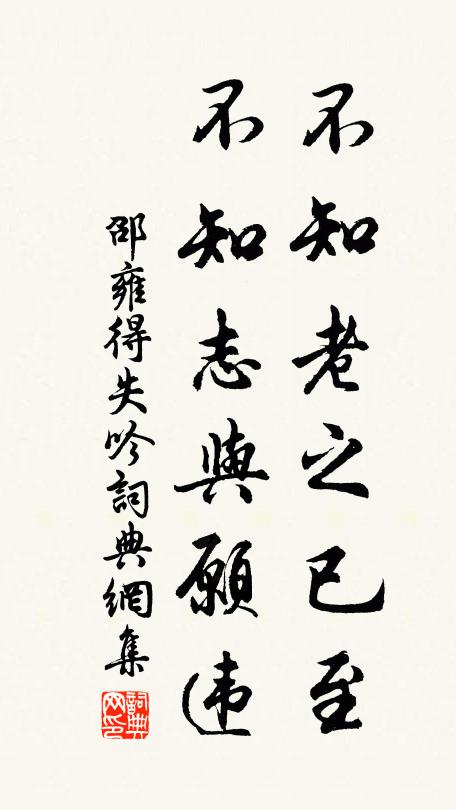 不知老之已至
不知志與願違
邵雍得失吟詞典網集
詞典网印